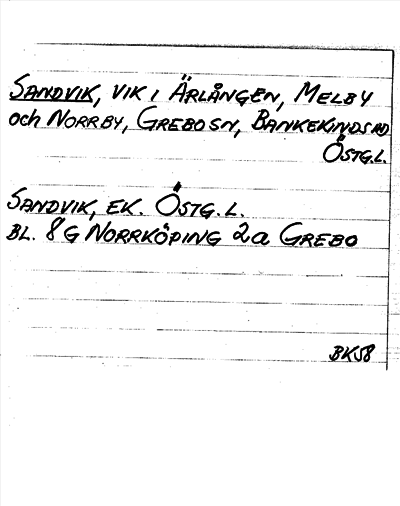 SANDVIK, VIK I ÄRLÅNGEN, MELBY
och NORRBY, GREBO SN, BANKEKINDS HD
ÖSTG.L.
SANDVIK, EK. ÖSTG.L.
BL. 8G NORRKÖPING 2a GREBO
BK58